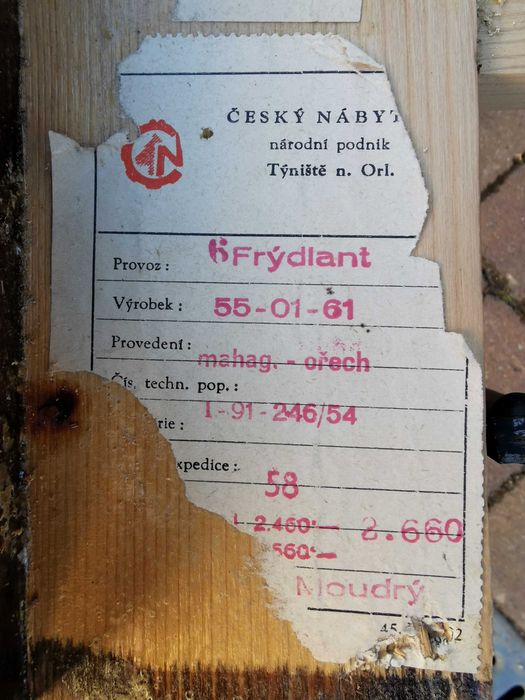 ČESKÝ NÁBYT
národní podnik
Týniště n. Orl.
Provoz: 6 Frýdlant
Výrobek: 55-01-61
Provedení: mahag. - ořech
Čís. techn. pop.:
rie: I-91-246/54
xpedice: 58
2.460·— 2.660
560·—
Moudrý
45